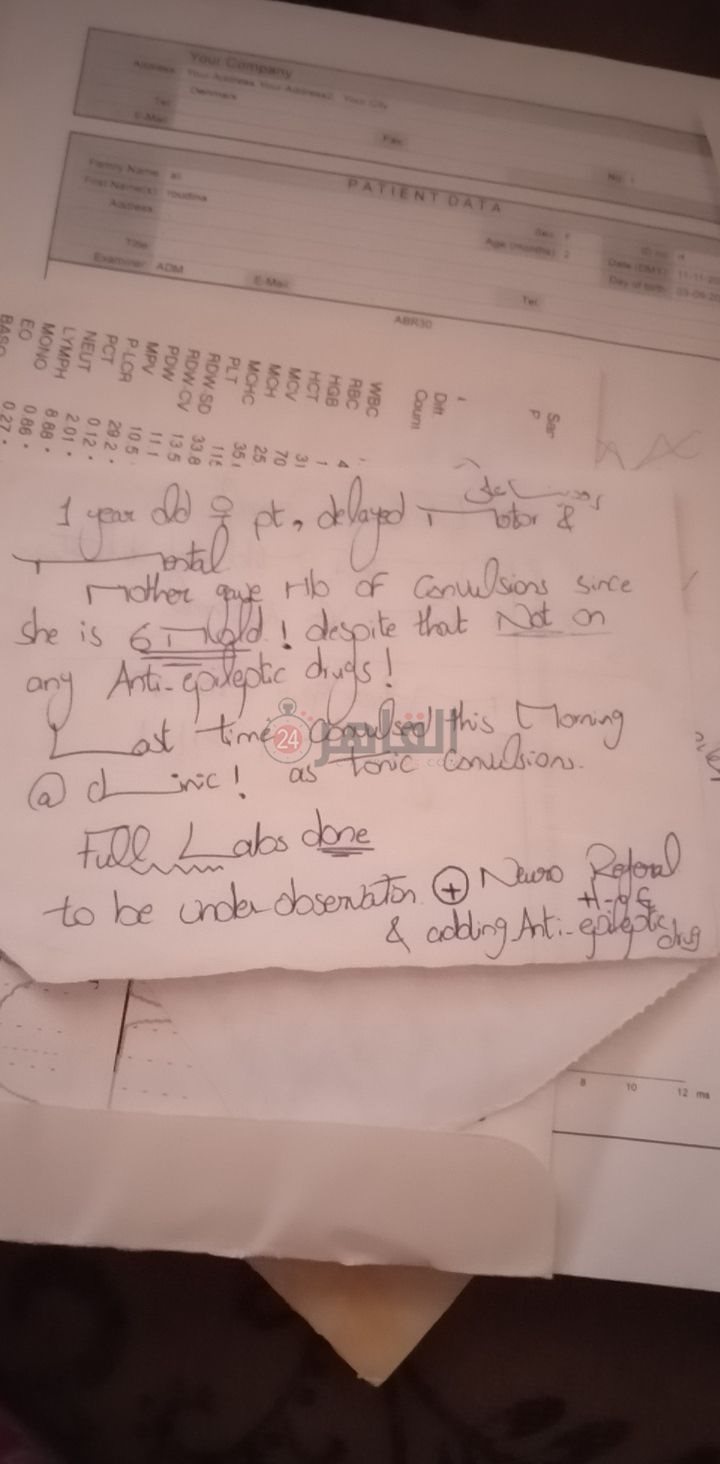 Your Company
Address Your Address Your Address2, Your City
Denmark
Tel
E-Mail
Fax
No
PATIENT DATA
Family Name ali
First Name(s) roudina
Address
Sex F
Age (months) 2
ID no 4
Date (DMY) 11-11-20
Day of birth 03-09-20
Title
Examiner ADM
E-Mail
Tel
ABR30
Diff
Count
WBC
RBC 4
HGB 1
HCT 31
MCV 70
MCH 25
MCHC 35
PLT
RDW-SD 33.8
RDW-CV 13.5
PDW 11.1
MPV 10.5
P-LCR 29.2
PCT 0.12
NEUT 2.01
LYMPH 8.88
MONO 0.86
EO 0.27
BASO
1 year old ♀ pt, delayed Motor &
Mental
Mother gave H/o of Convulsions since
she is 6 M old! despite that Not on
any Anti-epileptic drugs!
Last time convulsed this Morning
@ clinic! as Tonic Convulsions.
Full Labs done
to be under observation ⊕ Neuro Referal
& adding Anti-epileptic drug
القاهرة
24
8 10 12 ms